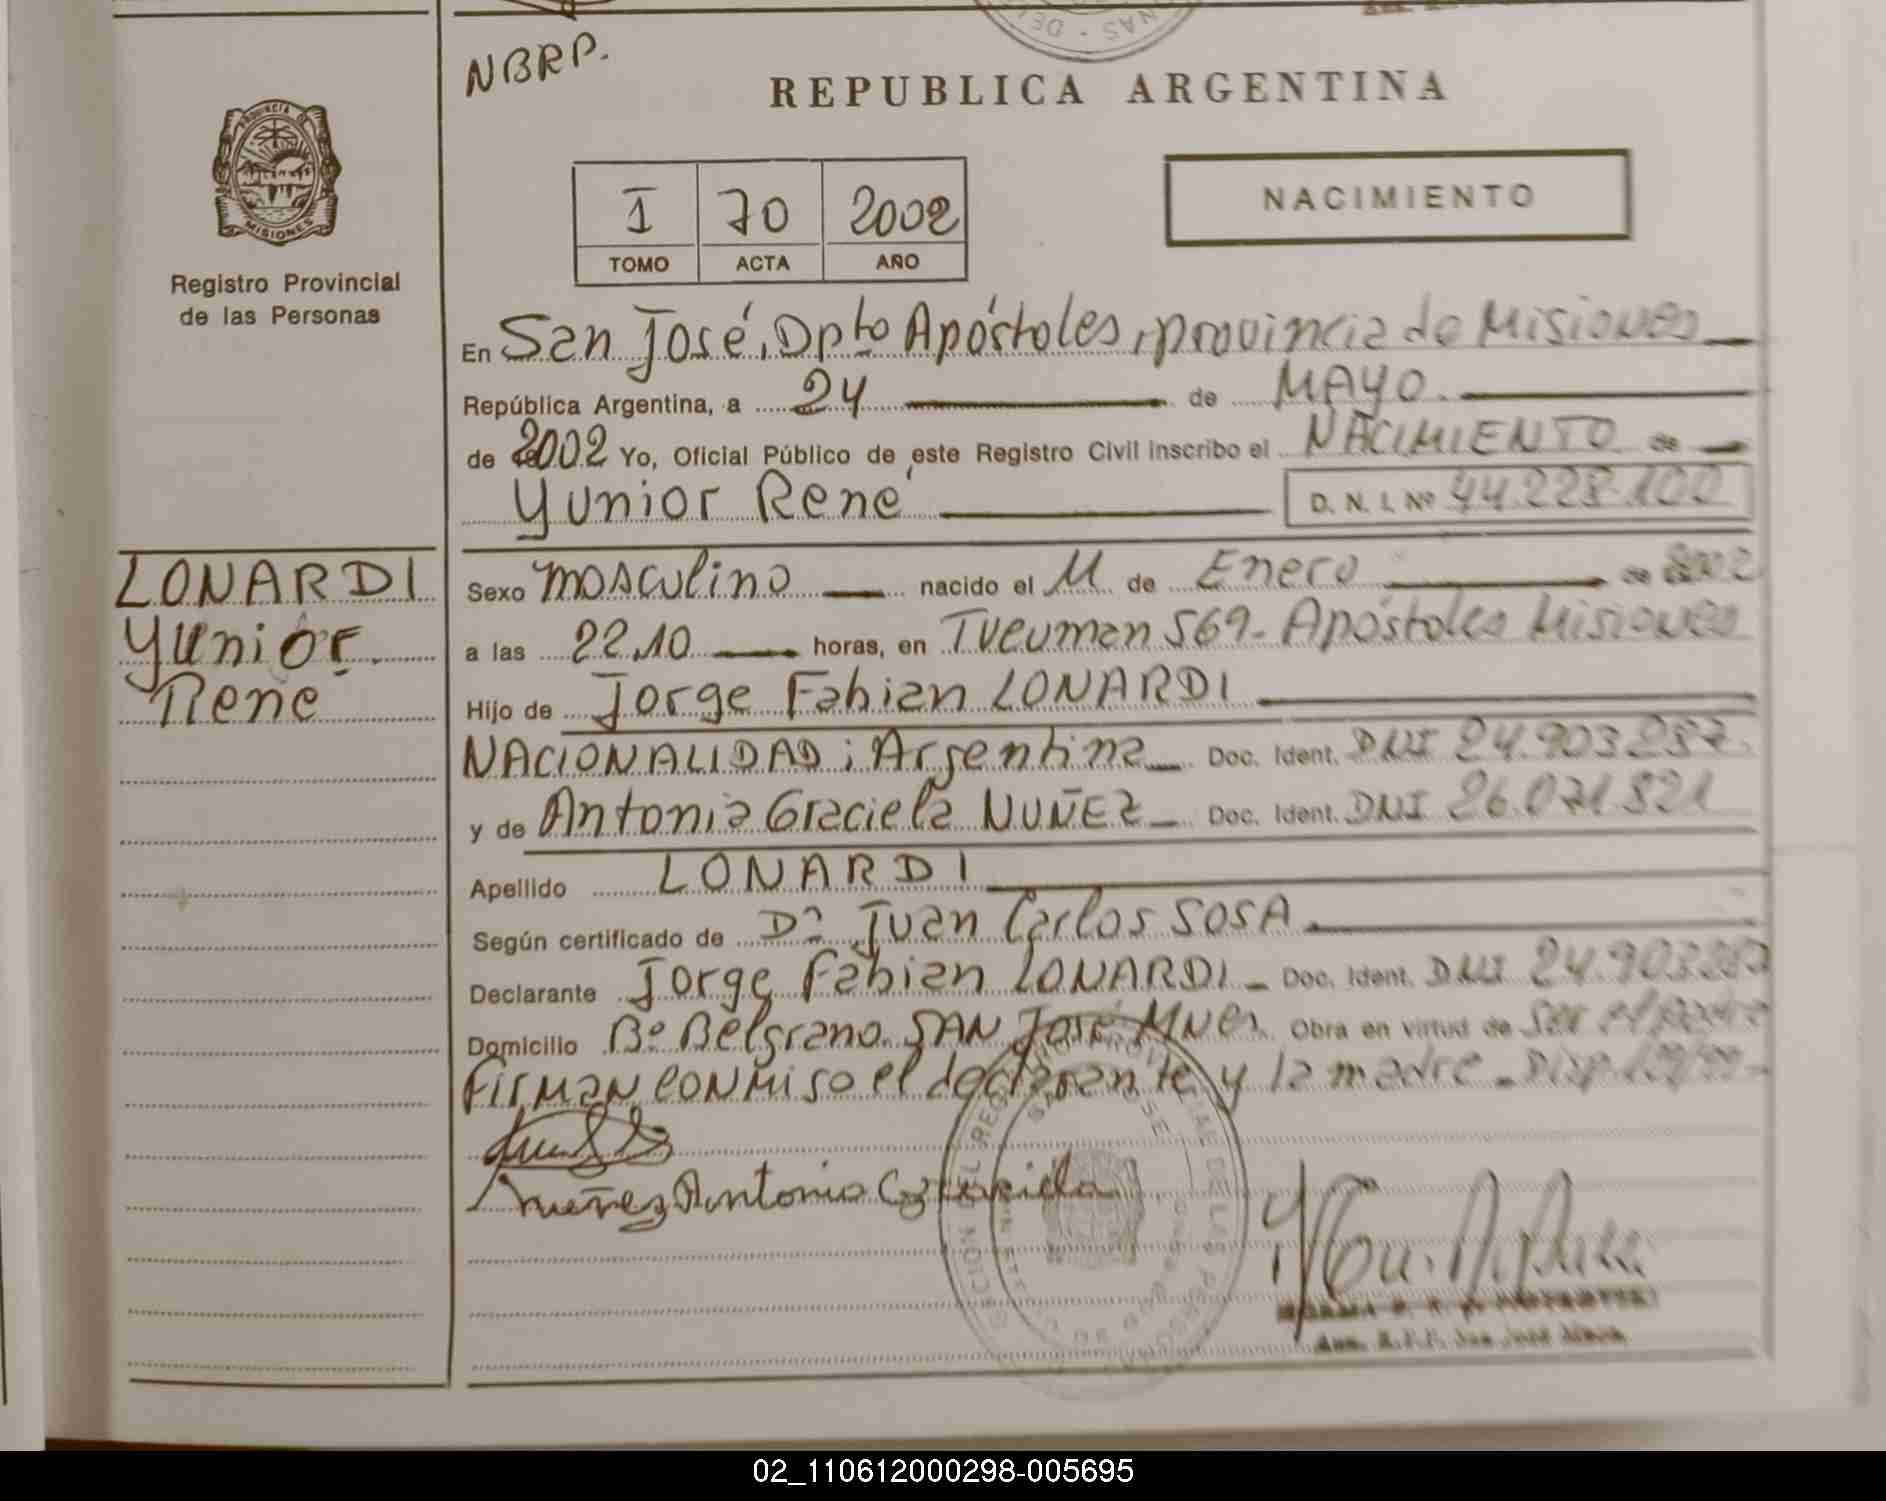 NBRP.
REPUBLICA ARGENTINA
PROVINCIA DE
MISIONES
Registro Provincial
de las Personas
I 70 2002
TOMO ACTA AÑO
NACIMIENTO
En San José, Dpto Apóstoles, provincia de Misiones
República Argentina, a 24 de MAYO
de 2002 Yo, Oficial Público de este Registro Civil inscribo el NACIMIENTO de
Yunior René D. N. I. Nº 44.228.100
LONARDI
Yunior
René
Sexo masculino nacido el 11 de Enero de 2002
a las 22.10 horas, en Tucuman 569- Apóstoles Misiones
Hijo de Jorge Fabian LONARDI
NACIONALIDAD: Argentina Doc. Ident. DNI 24.903.287
y de Antonia Graciela NUÑEZ Doc. Ident. DNI 26.071.821
Apellido LONARDI
Según certificado de Dª Juan Carlos SOSA
Declarante Jorge Fabian LONARDI Doc. Ident. DNI 24.903.287
Domicilio Bº Belgrano. SAN José Mnes. Obra en virtud de Ser el padre
Firman conmigo el declarante y la madre - Disp.
Nuñez Antonia Graciela
02_110612000298-005695